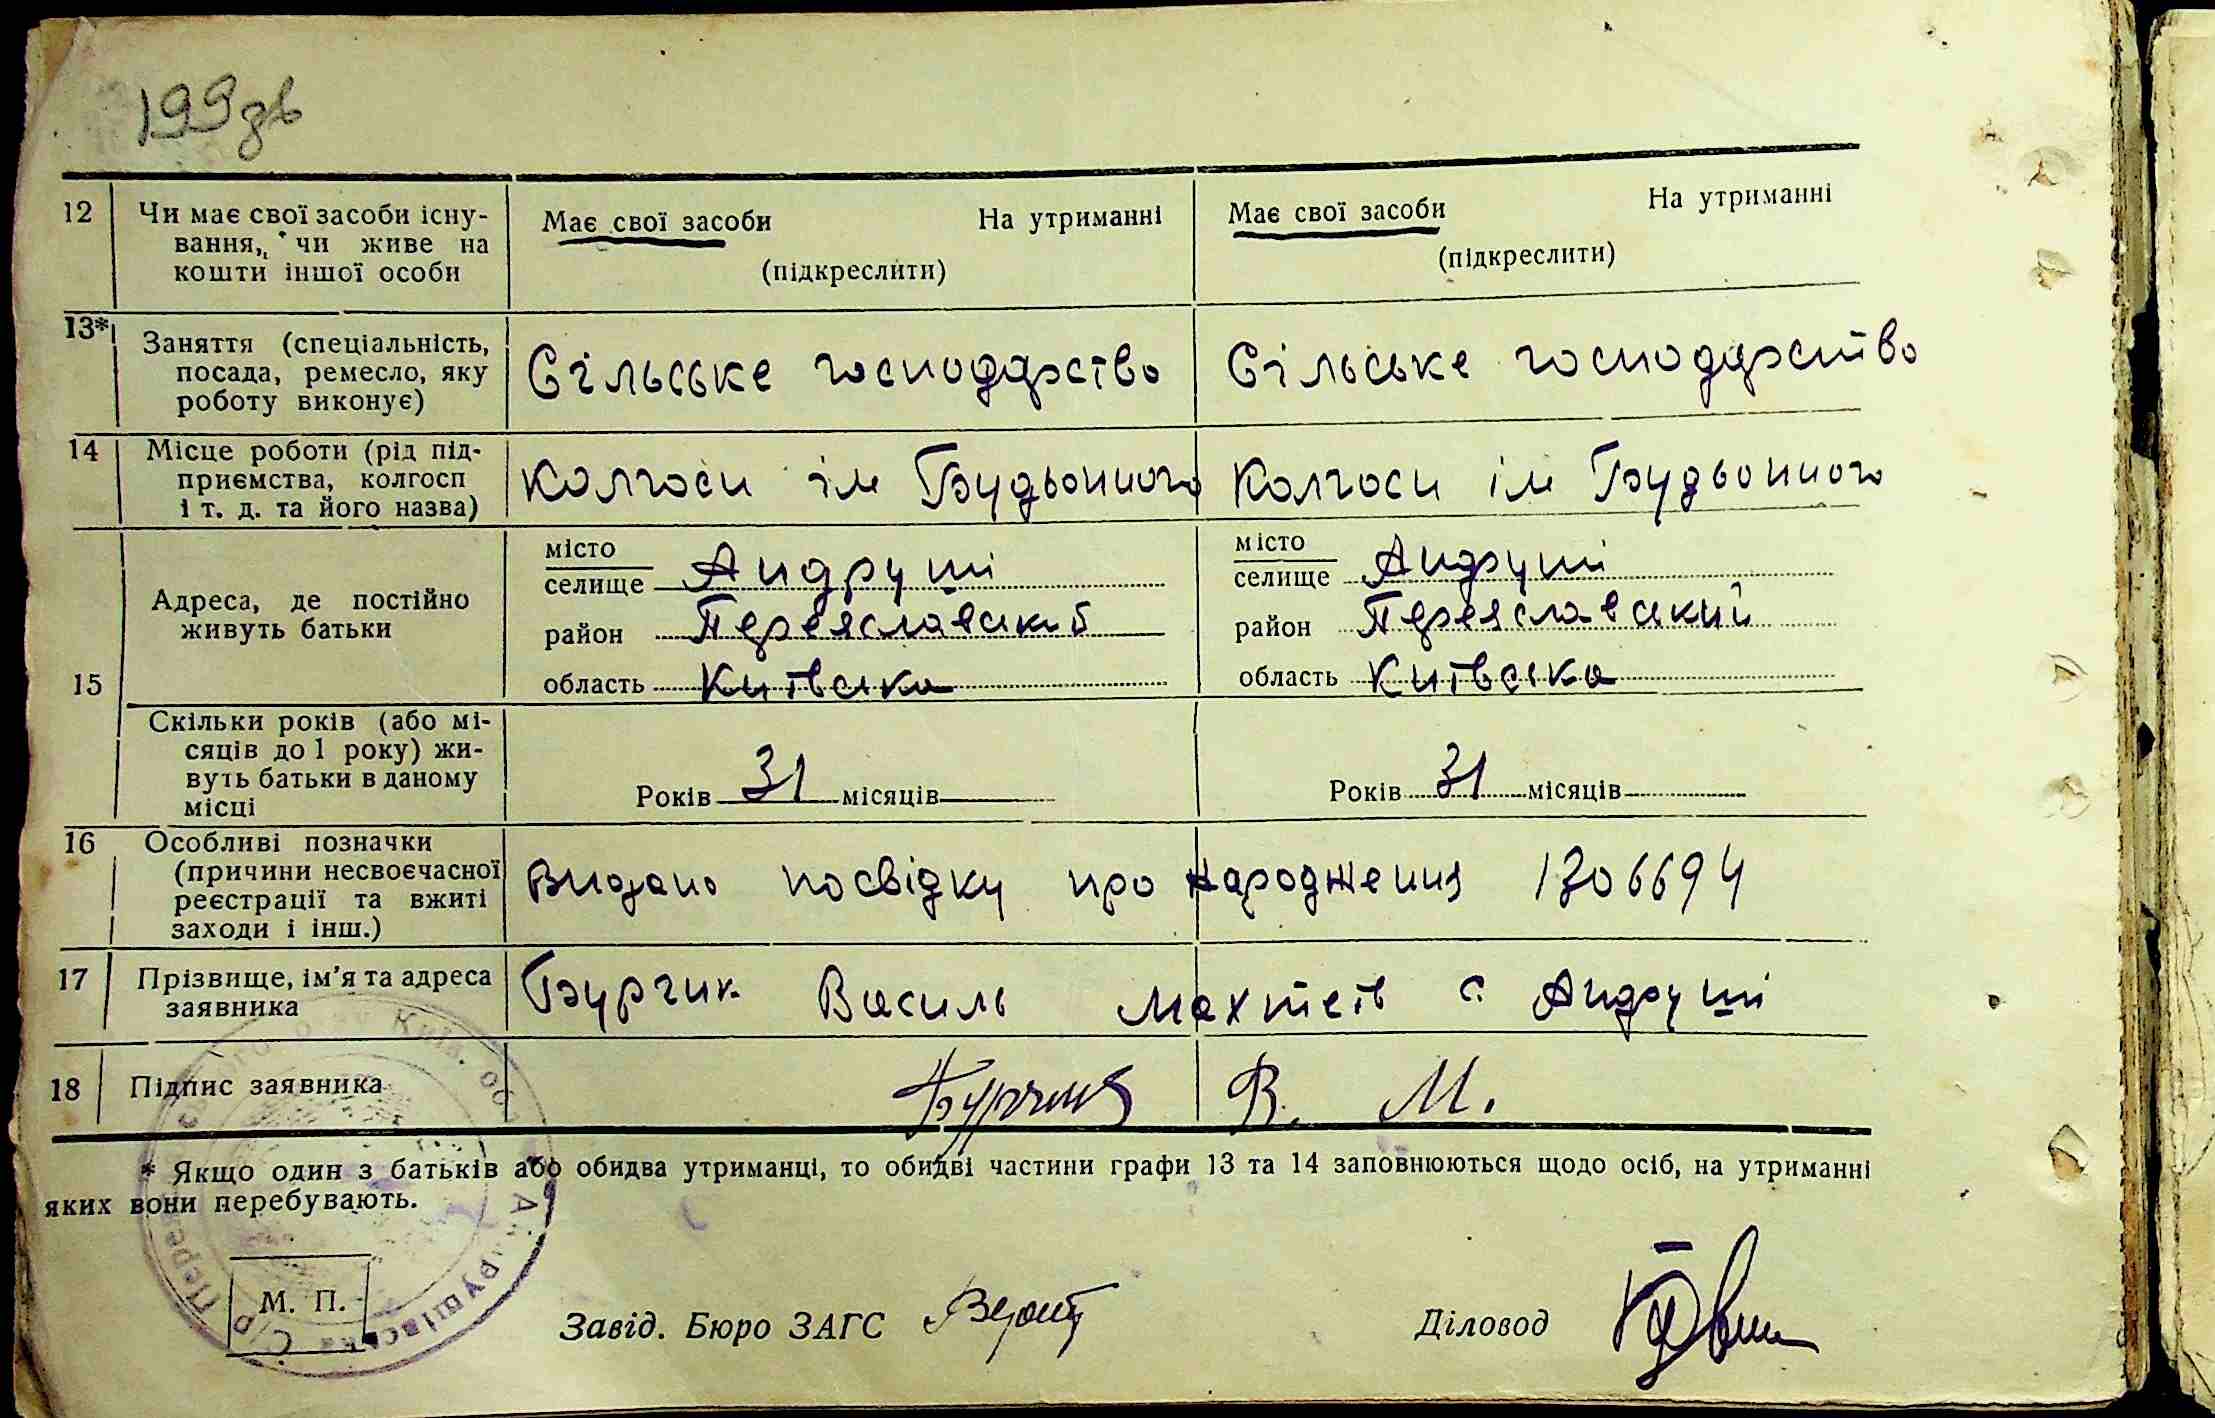 199 зв
12 Чи має свої засоби існу-
вання, чи живе на
кошти іншої особи
Має свої засоби На утриманні
(підкреслити)
Має свої засоби На утриманні
(підкреслити)
13* Заняття (спеціальність,
посада, ремесло, яку
роботу виконує)
Сільське господарство
Сільське господарство
14 Місце роботи (рід під-
приємства, колгосп
і т. д. та його назва)
Колгосп ім Будьонного
Колгосп ім Будьонного
15
Адреса, де постійно
живуть батьки
місто
селище Андруші
район Переяславский
область Київська
місто
селище Андруші
район Переяславський
область Київська
Скільки років (або мі-
сяців до 1 року) жи-
вуть батьки в даному
місці
Років 31 місяців
Років 31 місяців
16 Особливі позначки
(причини несвоєчасної
реєстрації та вжиті
заходи і інш.)
Видано посвідку про народження 1306694
17 Прізвище, ім'я та адреса
заявника
Бурчик Василь Махтеїв с. Андруші
18 Підпис заявника
В. М.
* Якщо один з батьків або обидва утриманці, то обидві частини графи 13 та 14 заповнюються щодо осіб, на утриманні
яких вони перебувають.
М. П.
Завід. Бюро ЗАГС
Діловод